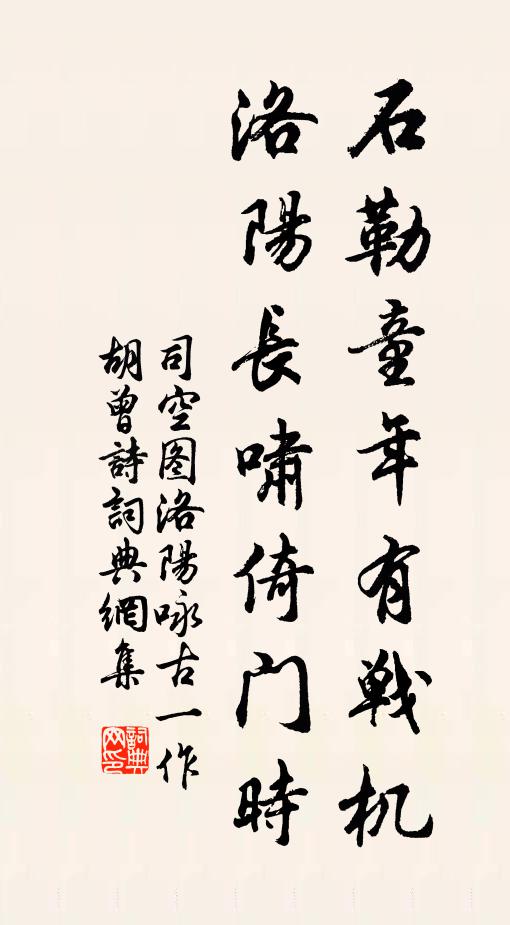 石勒童年有戦机
洛陽長嘯倚門時
司空图洛陽咏古一作
胡曾詩詞典網集
詞典網印